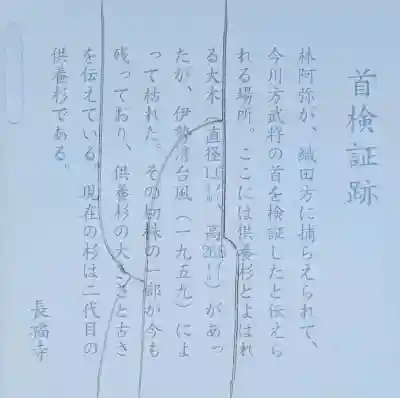 首検証跡
林阿弥が、織田方に捕らえられて、
今川方武将の首を検証したと伝えら
れる場所。ここには供養杉とよばれ
る大木（直径1.1㍍、高 ㍍）があっ
たが、伊勢湾台風（一九五九）によ
って枯れた。その切株の一部が今も
残っており、供養杉の大きさと古さ
を伝えている。現在の杉は二代目の
供養杉である。
長福寺